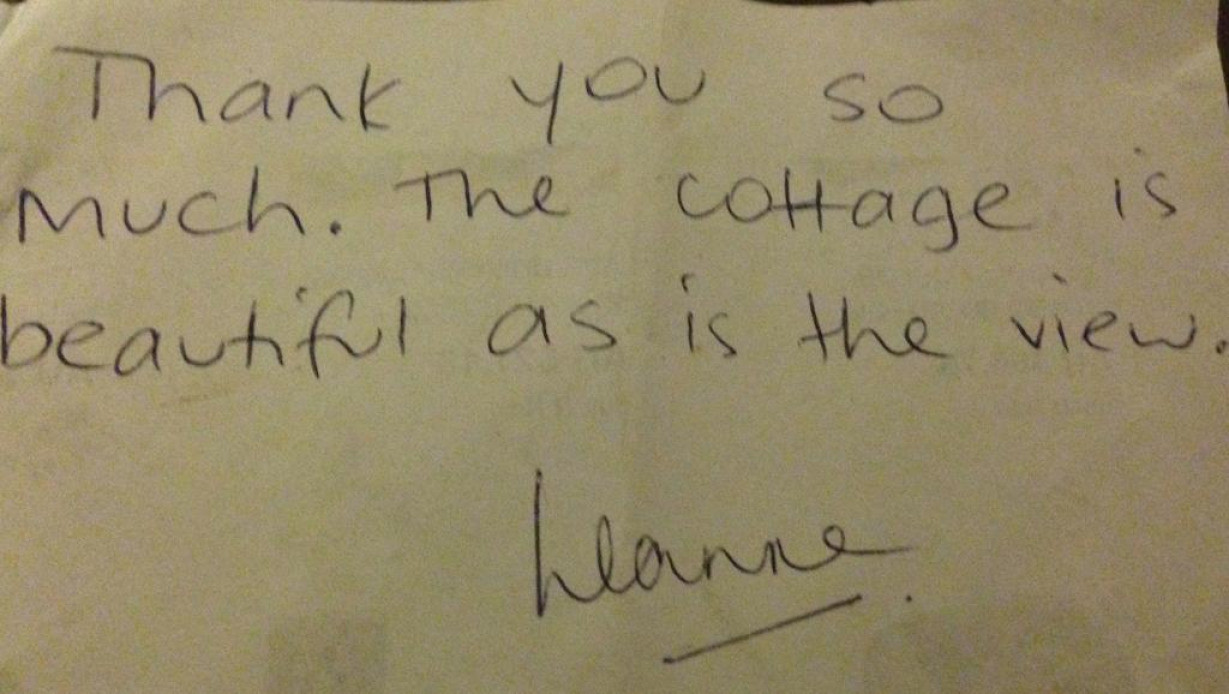 Thank you so
much. The cottage is
beautiful as is the view.
Leanne.